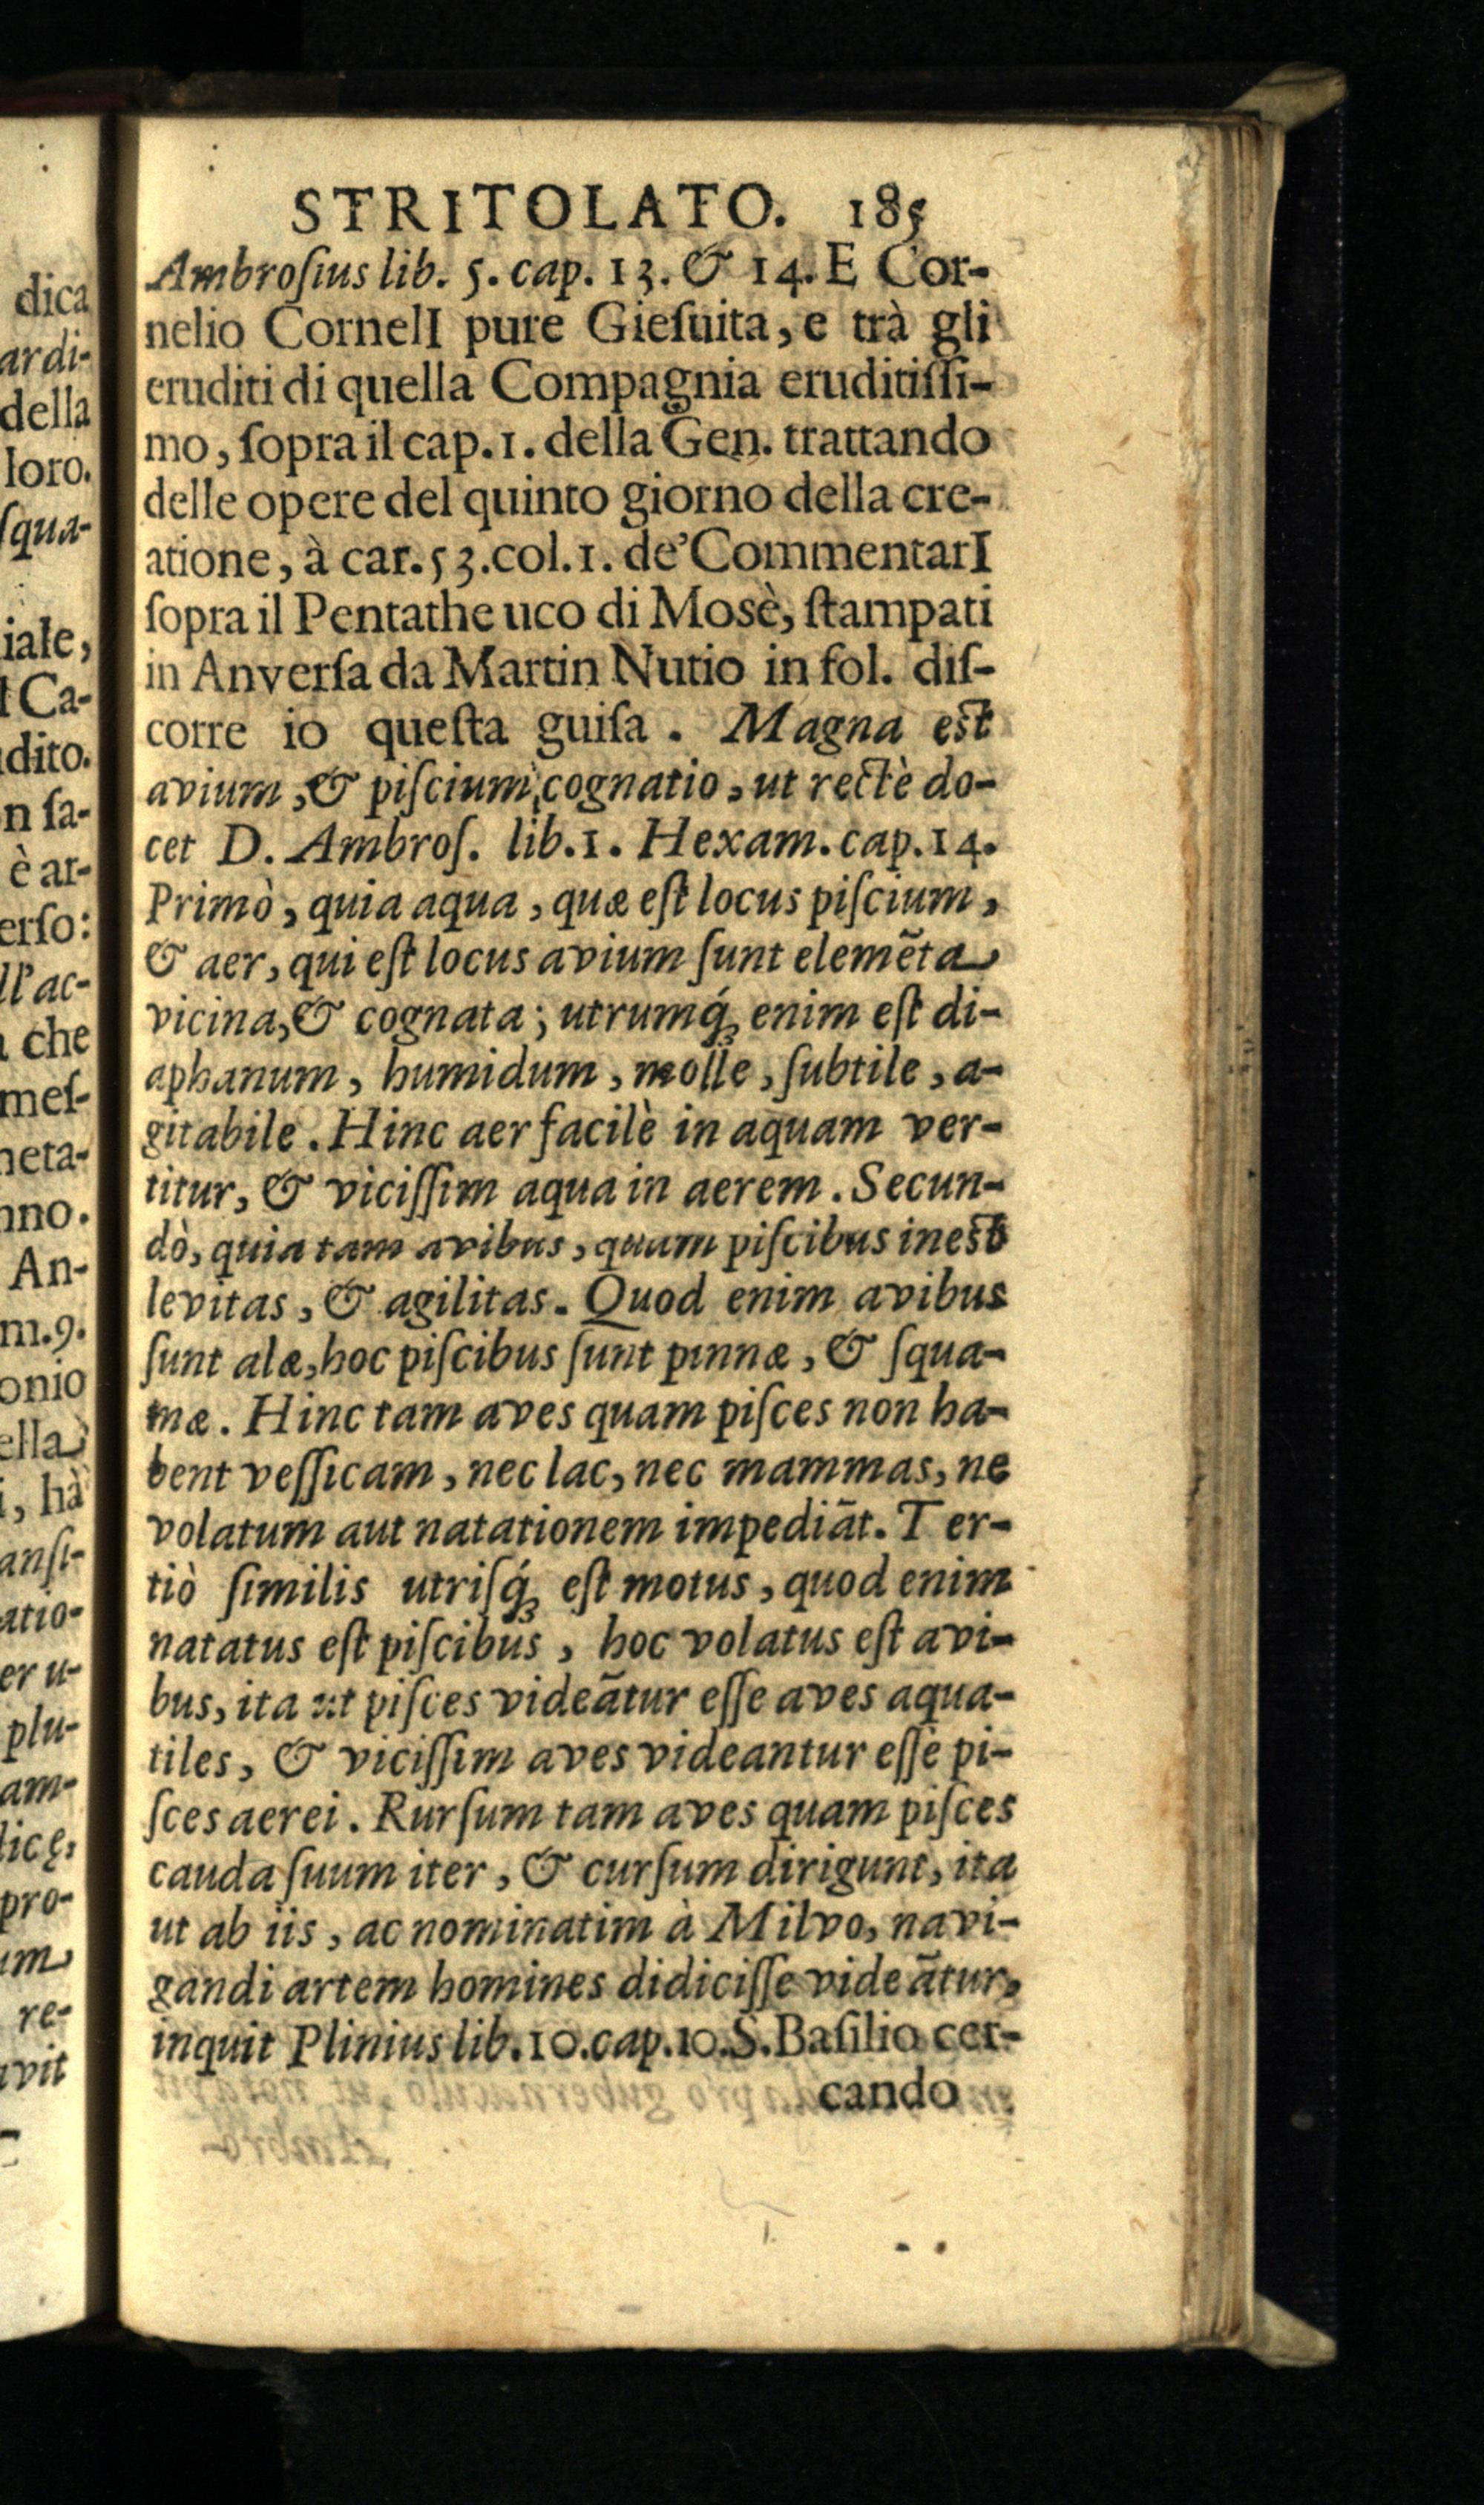 dica
ardi-
della
loro.
ſqua-
iale,
l Ca-
dito.
n ſa-
è ar-
erſo:
ll'ac-
che
meſ-
neta-
nno.
An-
m.9.
onio
ella
i, hà
anſi-
atio-
er u-
plu-
am-
licę,
pro-
um
re-
vit
STRITOLATO. 185
Ambroſius lib. 5. cap. 13. & 14. E Cor-
nelio CornelI pure Gieſuita, e trà gli
eruditi di quella Compagnia eruditiſſi-
mo, ſopra il cap. 1. della Gen. trattando
delle opere del quinto giorno della cre-
atione, à car. 53. col. 1. de' CommentarI
ſopra il Pentatheuco di Mosè, ſtampati
in Anverſa da Martin Nutio in fol. diſ-
corre io queſta guiſa. Magna eſt
avium, & piſcium, cognatio, ut rectè do-
cet D. Ambroſ. lib. 1. Hexam. cap. 14.
Primò, quia aqua, quæ eſt locus piſcium,
& aer, qui eſt locus avium ſunt elemẽta
vicina, & cognata; utrumq́; enim eſt di-
aphanum, humidum, molle, ſubtile, a-
gitabile. Hinc aer facilè in aquam ver-
titur, & viciſſim aqua in aerem. Secun-
dò, quia tam avibus, quam piſcibus ineſt
levitas, & agilitas. Quod enim avibus
ſunt alæ, hoc piſcibus ſunt pinnæ, & ſqua-
mæ. Hinc tam aves quam piſces non ha-
bent veſſicam, nec lac, nec mammas, ne
volatum aut natationem impediãt. Ter-
tiò ſimilis utriſq́; eſt motus, quod enim
natatus eſt piſcibus, hoc volatus eſt avi-
bus, ita ut piſces videãtur eſſe aves aqua-
tiles, & viciſſim aves videantur eſſe pi-
ſces aerei. Rurſum tam aves quam piſces
cauda ſuum iter, & curſum dirigunt, ita
ut ab iis, ac nominatim à Milvo, navi-
gandi artem homines didiciſſe videãtur,
inquit Plinius lib. 10. cap. 10. S. Baſilio cer-
cando